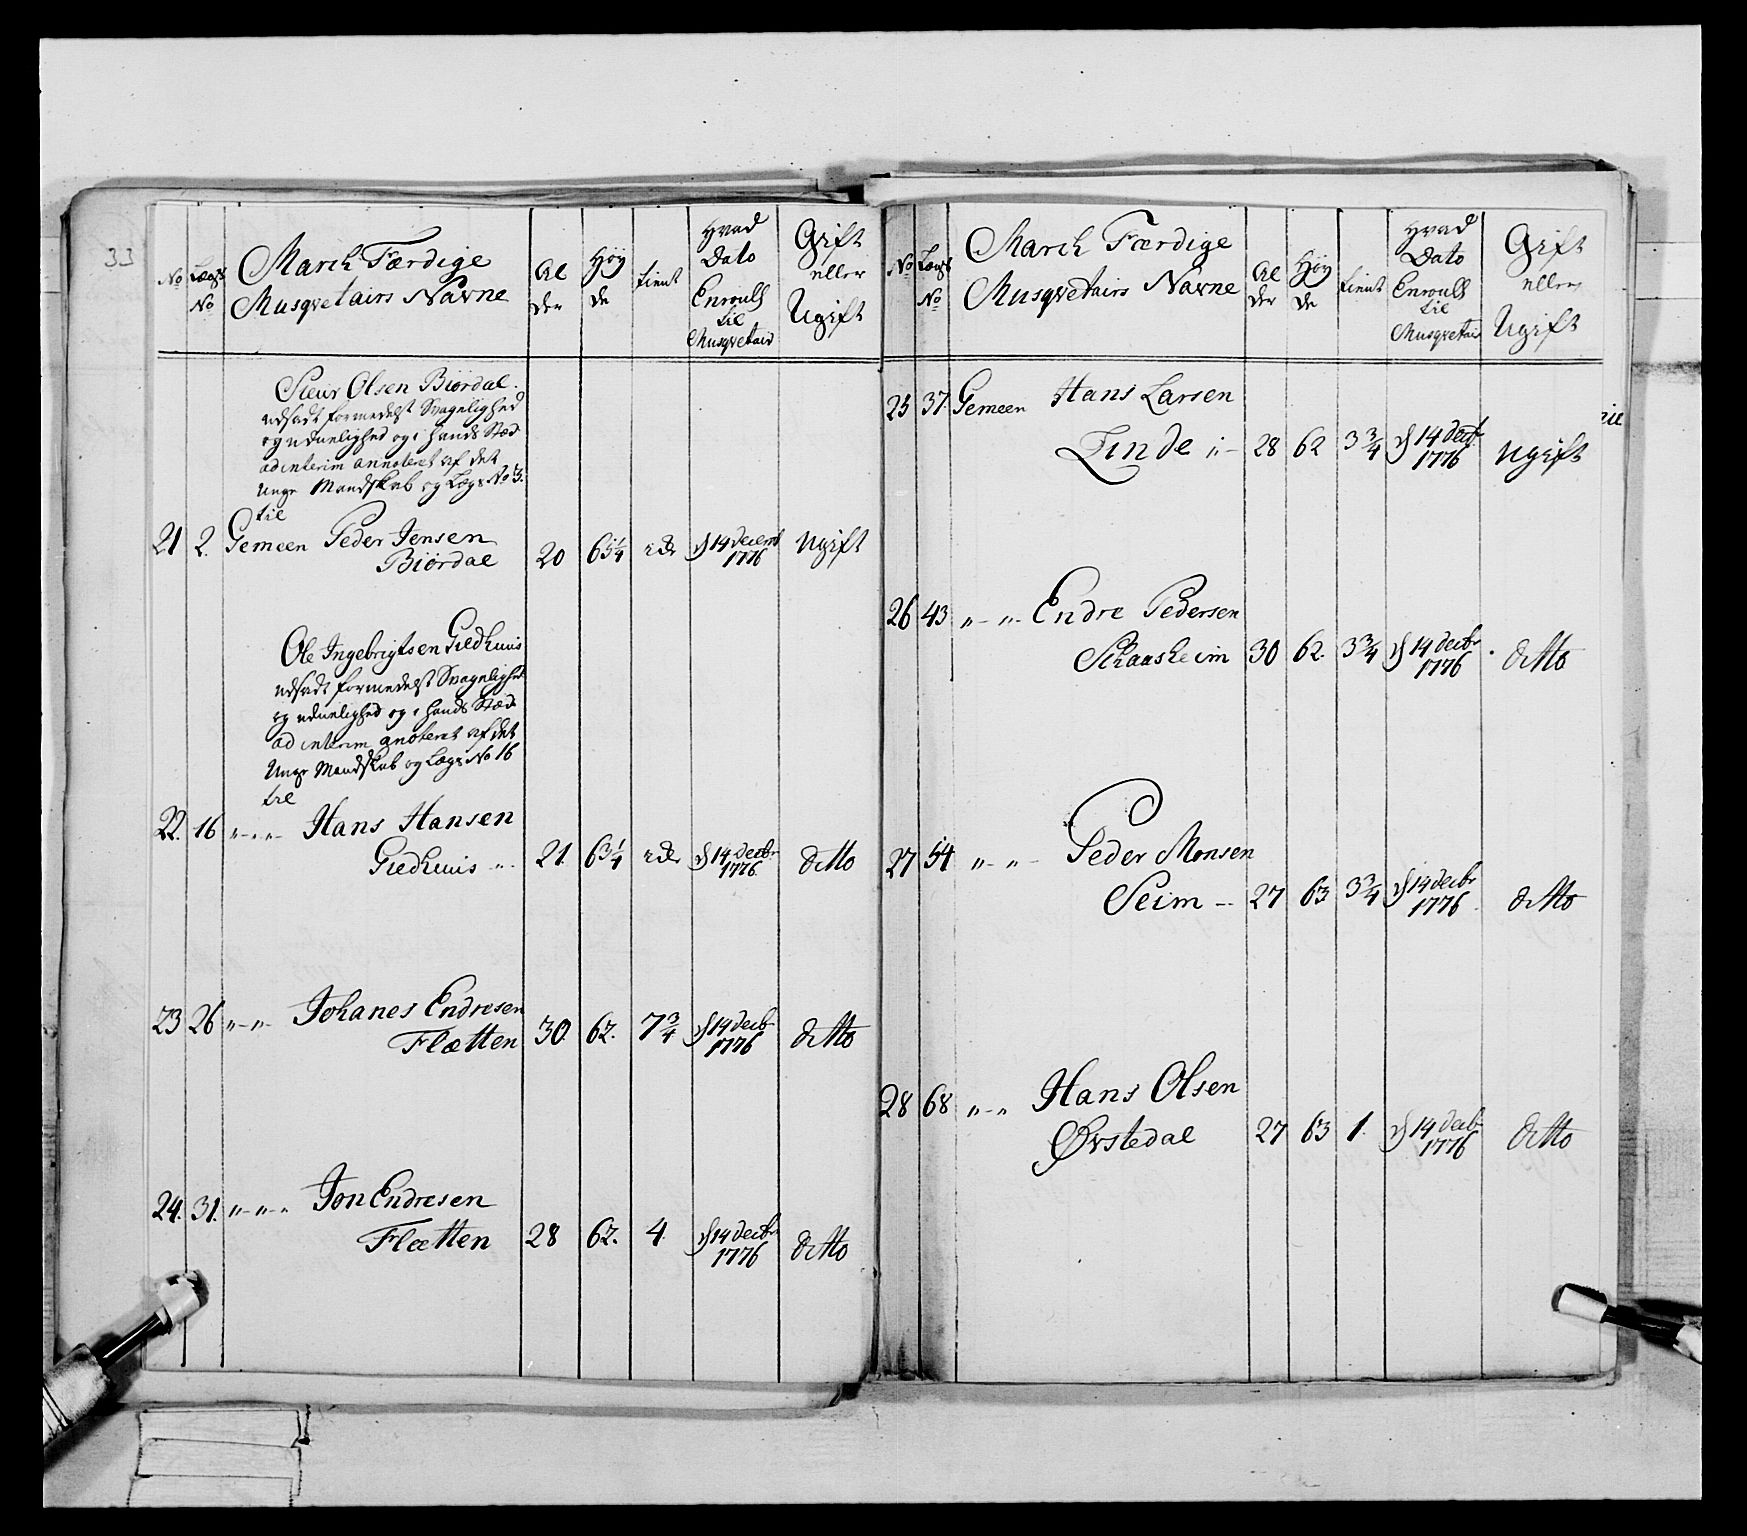 33
No Lægs No March Færdige Musqvetairs Navne Al der Høy de tient Hvad Dato Enroult til Musqvetair Gift eller Ugift
Sieur Olsen Biørdal.
udsadt formedelst Svagelighed
og uduelighed og i hands Stæd
ad interim annoteret af det
Unge Mandskab og Lægs No 3.
til
21 2. Gemeen Peder Jensen
Biørdal 20 65 1/4 d 14 decemb 1776 Ugift
Ole Ingebrigtsen Giedhuus
udsadt formedelst Svagelighed
og uduelighed og i hands Stæd
ad interim anoteret af det
Unge Mandskab og Lægs No 16
til
22. 16 " - " - Hans Hansen
Giedhuus " - 21. 63 1/4 d 14 decbr 1776. ditto
23 26 " - " - Johanes Endresen
Flætten 30. 62. 7 3/4 d 14 decb 1776 ditto
24. 31. " - " - " Jon Endresen
Flætten 28 62. 4. d 14 decbr 1776 ditto
No Lægs No March Færdige Musqvetairs Navne Al der Høy de tient Hvad Dato Enroult til Musqvetair Gift eller Ugift
25 37 Gemeen Hans Larsen
Linde " - 28 62 3 3/4 d 14 decb 1776 Ugift
26 43 " - " - Endre Pedersen
Skaasheim 30 62. 3 3/4 d 14 decbr 1776 ditto
27 54 " - " - Peder Monsen
Seim - - 27 63 3 3/4 d 14 decbr 1776. ditto
28 68 " - " Hans Olsen
Ørstedal 27 63 1. d 14 decb 1776 ditto